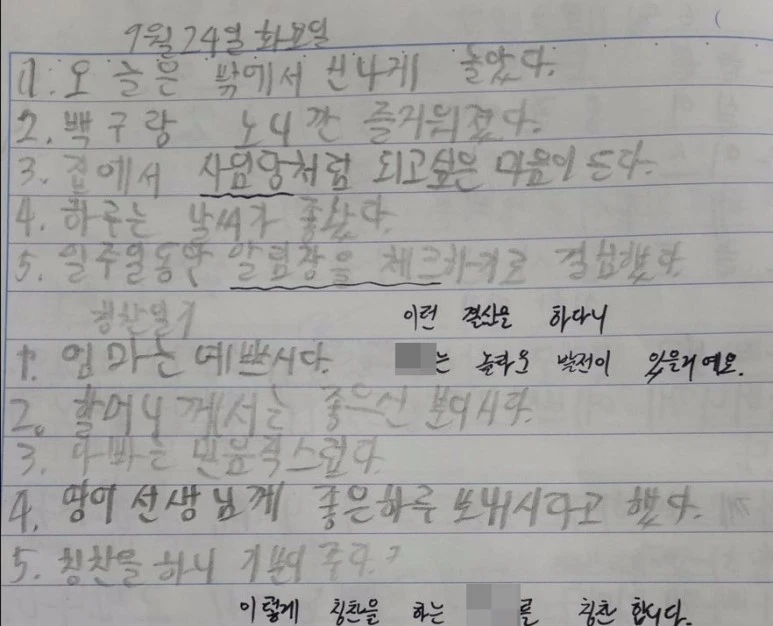 9월 24일 화요일
1. 오늘은 밖에서 신나게 놀았다.
2. 빽구랑 노니깐 즐거워졌다.
3. 집에서 사임당처럼 되고싶은 마음이 든다.
4. 하루는 날씨가 좋았다.
5. 일주일동안 알림장을 체크하기로 결심했다
칭찬일기
이런 결심을 하다니
1. 엄마는 예쁘시다.
는 놀라운 발전이 있을거예요.
2. 할머니께서는 좋으신 분이시다.
3. 아빠는 믿음직스럽다.
4. 영어선생님께 좋은하루 보내시라고 했다.
5. 칭찬을 하니 기분이
이렇게 칭찬을 하는 를 칭찬합니다.